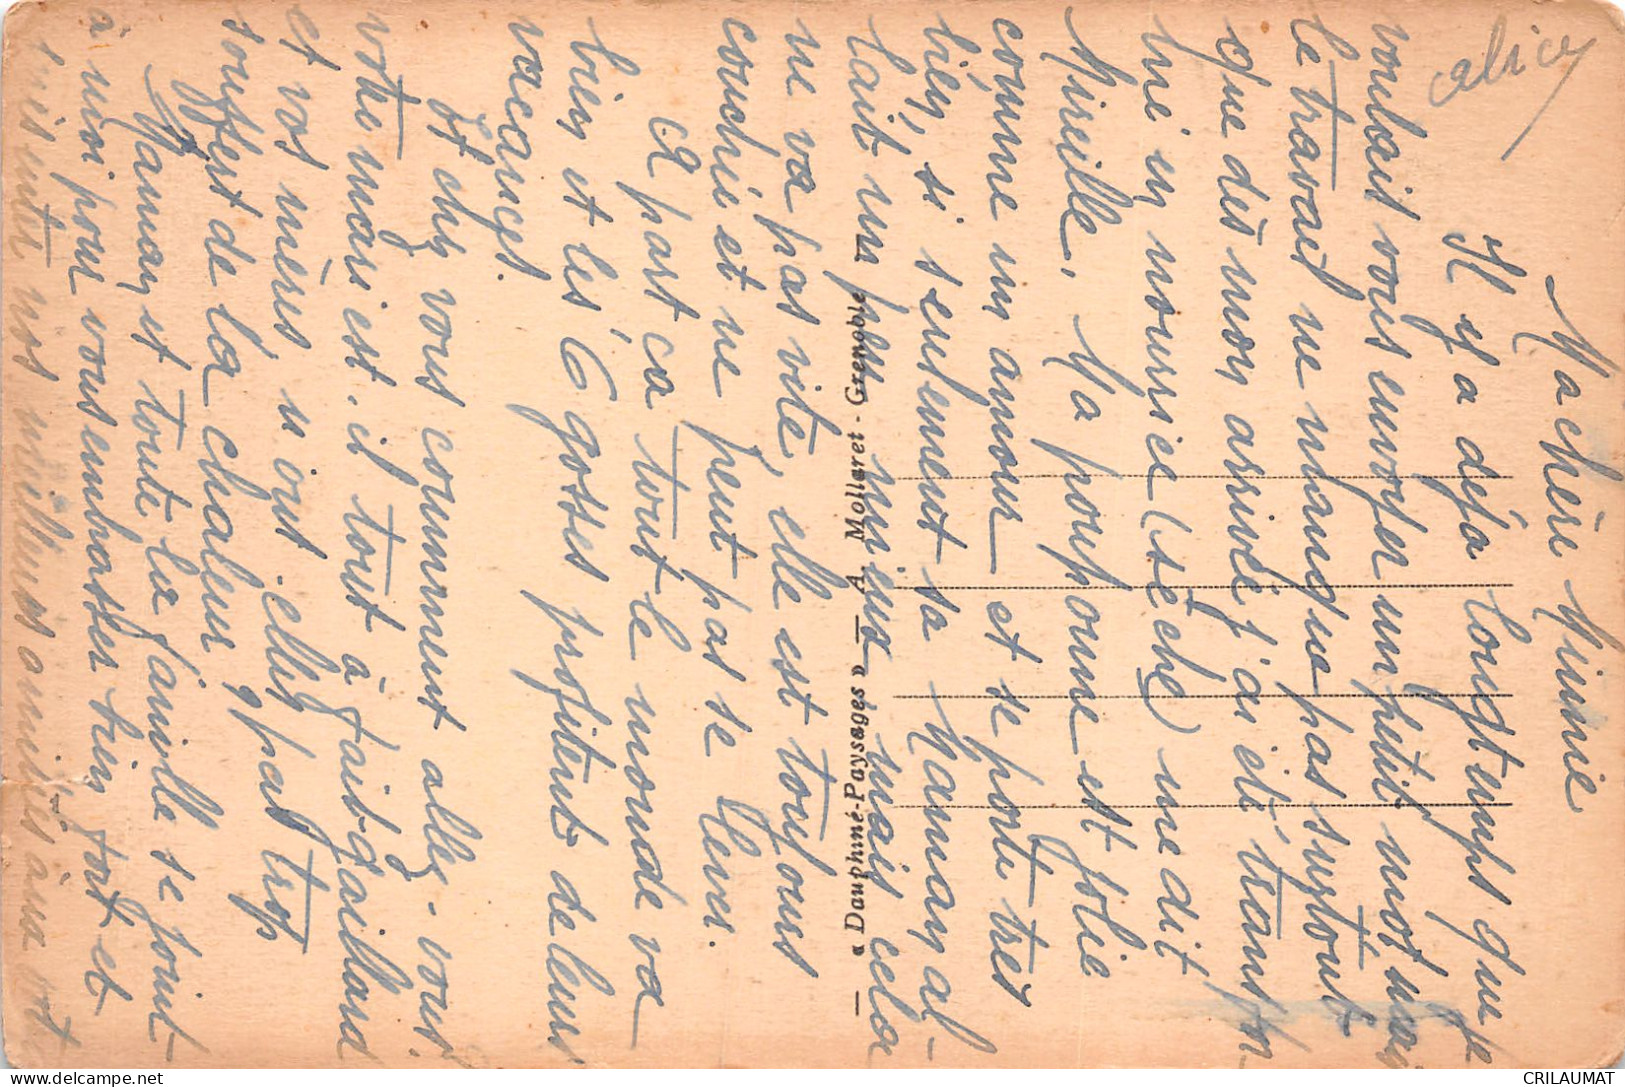 Ma chère Mimie
Il y a déja longtemps que je
voulais vous envoyer un petit mot mais
le travail ne manque pas surtout
que dès mon arrivée j'ai été transfor
mé en nourrice (sèche) me dit
Mireille. Ma pouponne est jolie
comme un amour et se porte très
bien, si seulement sa Maman al-
lait un peu mieux mais cela
ne va pas vite, elle est toujours
couchée et ne peut pas se lever.
A part ça tout le monde va
bien et les 6 gosses profitent de leurs
vacances.
Et chez vous comment allez-vous
votre mari est-il tout à fait gaillard
et vos mères n'ont elles pas trop
souffert de la chaleur
Maman et toute la famille se joint
à moi pour vous embrasser bien fort et
nos meilleurs amitiés à
alice
— « Dauphiné-Paysages » — A. Mollaret - Grenoble —
CRILAUMAT